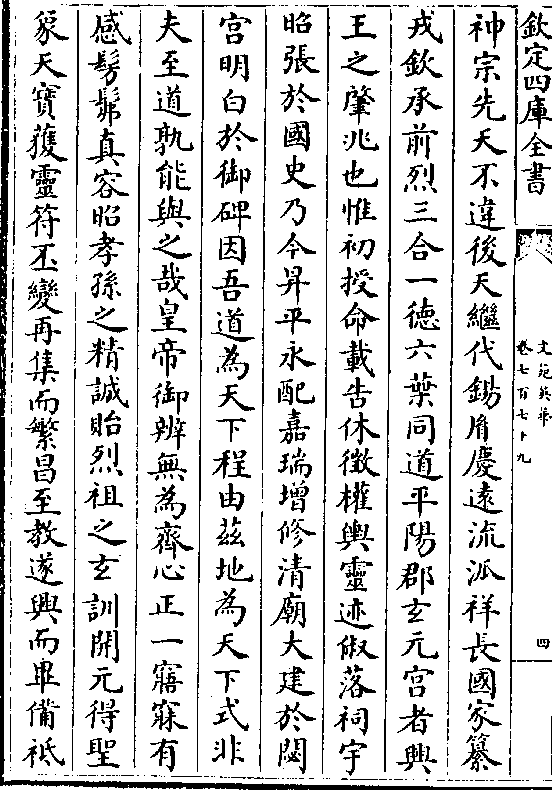 欽定四庫全書
文苑英華
卷七百七十九
四
神宗先天不違後天繼代錫胤慶遠流派祥長國家纂
戎欽承前烈三合一徳六葉同道平陽郡玄元宫者興
王之肇兆也惟初授命載告休徴權輿靈迹俶落祠宇
昭張於國史乃今昇平永配嘉瑞增修清廟大建於閟
宫明白於御碑因吾道為天下程由兹地為天下式非
夫至道孰能與之哉皇帝御辨無為齊心正一寤寐有
感髣髴真容昭孝孫之精誠貽烈祖之玄訓開元得聖
象天寳獲靈符丕變再集而繁昌至教遂興而畢備祗